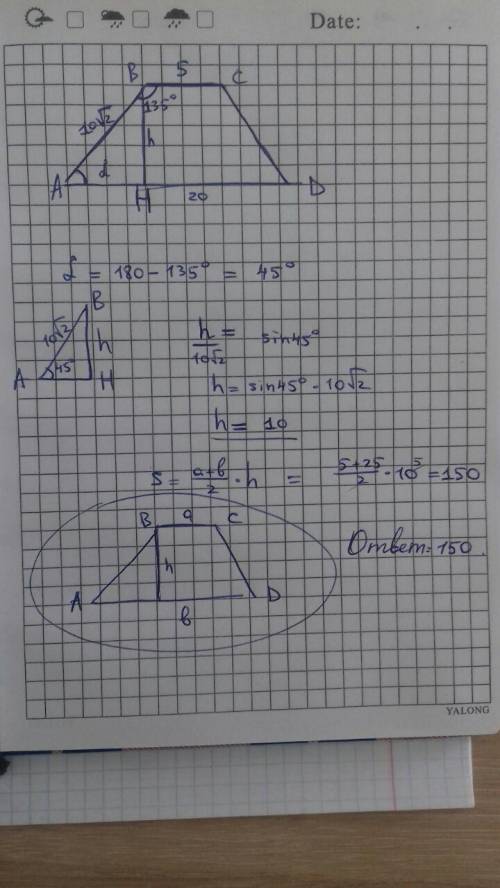 Date: . .
B 5 C
10√2 135°
h
A α H 20 D
α = 180 - 135° = 45°
B
10√2 h
A 45 H
h/10√2 = sin45°
h = sin45° · 10√2
h = 10
S = (a+b)/2 · h = (5+25)/2 · 10⁵ = 150
B a C
h
A b D
Ответ: 150.
YALONG